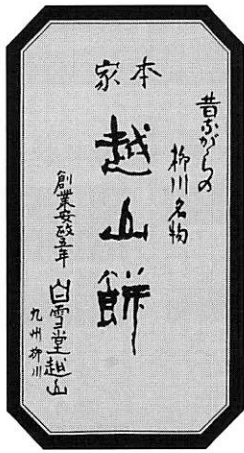 昔ながらの
柳川名物
本家
越山餅
創業安政五年
白雪堂越山
九州柳川